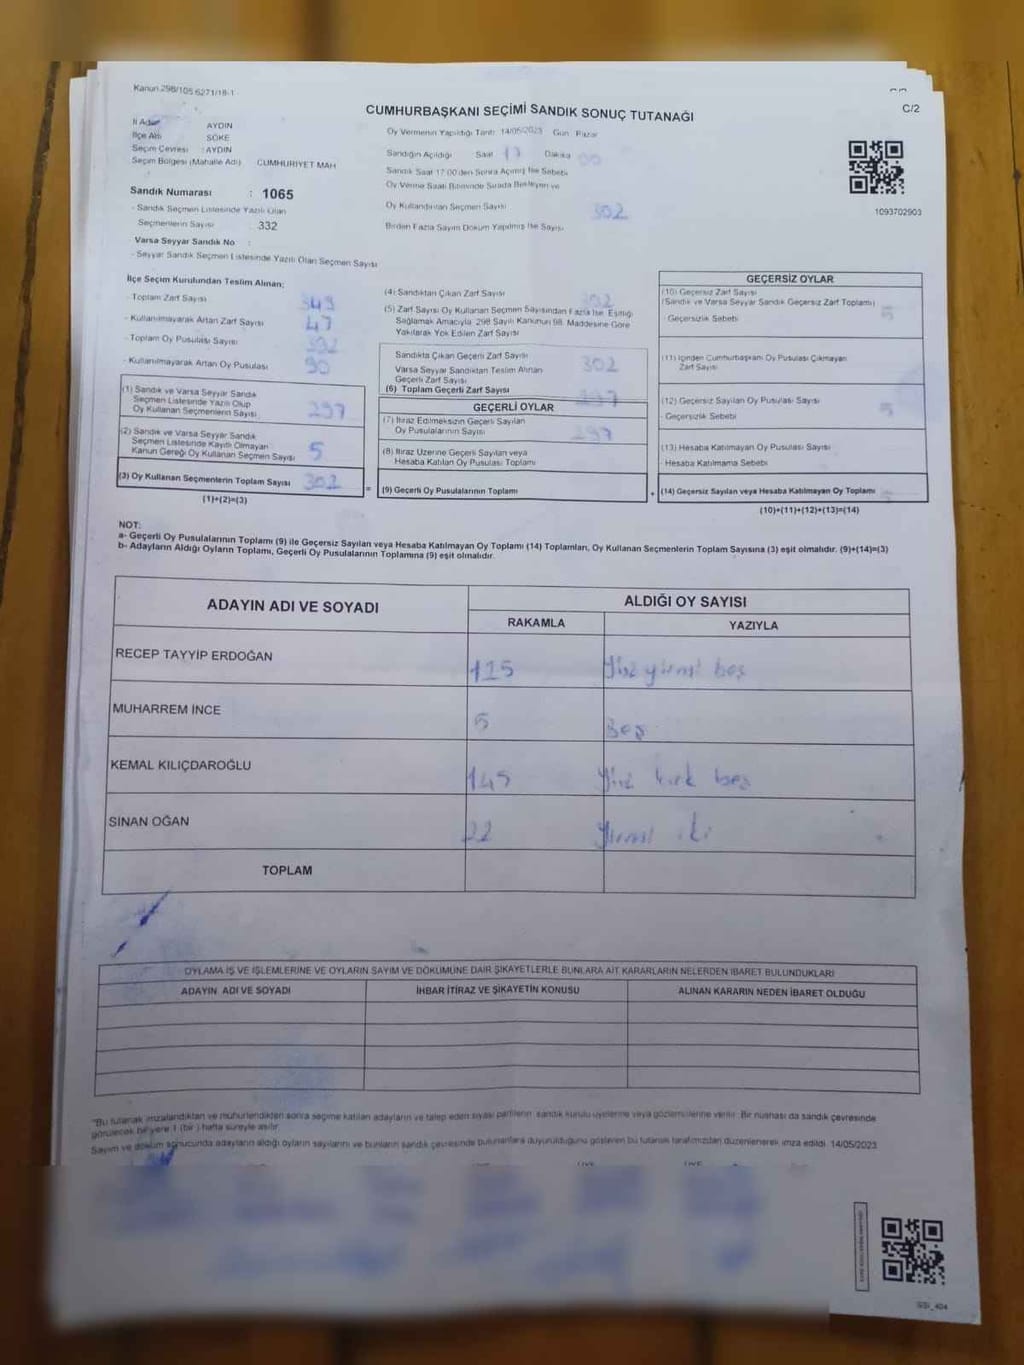 Kanun 298/105 6271/18-1
C/2
CUMHURBAŞKANI SEÇİMİ SANDIK SONUÇ TUTANAĞI
İl Adı : AYDIN
İlçe Adı : SÖKE
Seçim Çevresi : AYDIN
Seçim Bölgesi (Mahalle Adı) CUMHURİYET MAH
Sandık Numarası : 1065
- Sandık Seçmen Listesinde Yazılı Olan
Seçmenlerin Sayısı : 332
- Varsa Seyyar Sandık No :
- Seyyar Sandık Seçmen Listesinde Yazılı Olan Seçmen Sayısı
Oy Vermenin Yapıldığı Tarih 14/05/2023 Gün Pazar
Sandığın Açıldığı Saat 17 Dakika 00
Sandık Saat 17.00'den Sonra Açılmış İse Sebebi
Oy Verme Saati Bitiminde Sırada Bekleyen ve
Oy Kullandırılan Seçmen Sayısı 302
Birden Fazla Sayım Döküm Yapılmış İse Sayısı
1093702903
İlçe Seçim Kurulundan Teslim Alınan;
- Toplam Zarf Sayısı 349
- Kullanılmayarak Artan Zarf Sayısı 47
- Toplam Oy Pusulası Sayısı 392
- Kullanılmayarak Artan Oy Pusulası 90
(1) Sandık ve Varsa Seyyar Sandık
Seçmen Listesinde Yazılı Olup
Oy Kullanan Seçmenlerin Sayısı 297
(2) Sandık ve Varsa Seyyar Sandık
Seçmen Listesinde Kayıtlı Olmayan
Kanun Gereği Oy Kullanan Seçmen Sayısı 5
(3) Oy Kullanan Seçmenlerin Toplam Sayısı 302
(1)+(2)=(3)
(4) Sandıktan Çıkan Zarf Sayısı 302
(5) Zarf Sayısı Oy Kullanan Seçmen Sayısından Fazla İse Eşitliği
Sağlamak Amacıyla 298 Sayılı Kanunun 98. Maddesine Göre
Yakılarak Yok Edilen Zarf Sayısı
Sandıkta Çıkan Geçerli Zarf Sayısı 302
Varsa Seyyar Sandıktan Teslim Alınan
Geçerli Zarf Sayısı
(6) Toplam Geçerli Zarf Sayısı 297
GEÇERLİ OYLAR
(7) İtiraz Edilmeksizin Geçerli Sayılan
Oy Pusulalarının Sayısı 297
(8) İtiraz Üzerine Geçerli Sayılan veya
Hesaba Katılan Oy Pusulası Toplamı
= (9) Geçerli Oy Pusulalarının Toplamı
GEÇERSİZ OYLAR
(10) Geçersiz Zarf Sayısı
(Sandık ve Varsa Seyyar Sandık Geçersiz Zarf Toplamı) 5
- Geçersizlik Sebebi
(11) İçinden Cumhurbaşkanı Oy Pusulası Çıkmayan
Zarf Sayısı
(12) Geçersiz Sayılan Oy Pusulası Sayısı 5
- Geçersizlik Sebebi
(13) Hesaba Katılmayan Oy Pusulası Sayısı
- Hesaba Katılmama Sebebi
+ (14) Geçersiz Sayılan veya Hesaba Katılmayan Oy Toplamı 5
(10)+(11)+(12)+(13)=(14)
NOT:
a- Geçerli Oy Pusulalarının Toplamı (9) ile Geçersiz Sayılan veya Hesaba Katılmayan Oy Toplamı (14) Toplamları, Oy Kullanan Seçmenlerin Toplam Sayısına (3) eşit olmalıdır. (9)+(14)=(3)
b- Adayların Aldığı Oyların Toplamı, Geçerli Oy Pusulalarının Toplamına (9) eşit olmalıdır.
ADAYIN ADI VE SOYADI ALDIĞI OY SAYISI
RAKAMLA YAZIYLA
RECEP TAYYİP ERDOĞAN 125 Yüz yirmi beş
MUHARREM İNCE 5 Beş
KEMAL KILIÇDAROĞLU 145 Yüz kırk beş
SİNAN OĞAN 22 Yirmi iki
TOPLAM
OYLAMA İŞ VE İŞLEMLERİNE VE OYLARIN SAYIM VE DÖKÜMÜNE DAİR ŞİKAYETLERLE BUNLARA AİT KARARLARIN NELERDEN İBARET BULUNDUKLARI
ADAYIN ADI VE SOYADI İHBAR İTİRAZ VE ŞİKAYETİN KONUSU ALINAN KARARIN NEDEN İBARET OLDUĞU
"Bu tutanak imzalandıktan ve mühürlendikten sonra seçime katılan adayların ve talep eden siyasi partilerin sandık kurulu üyelerine veya gözlemcilerine verilir. Bir nüshası da sandık çevresinde
görülecek bir yere 1 (bir) hafta süreyle asılır.
Sayım ve döküm sonucunda adayların aldığı oyların sayılarını ve bunların sandık çevresinde bulunanlara duyurulduğunu gösteren bu tutanak tarafımızdan düzenlenerek imza edildi. 14/05/2023